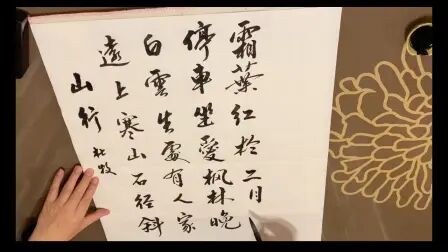 山行
杜牧
遠上寒山石径斜
白雲生處有人家
停車坐愛枫林晚
霜葉紅於二月